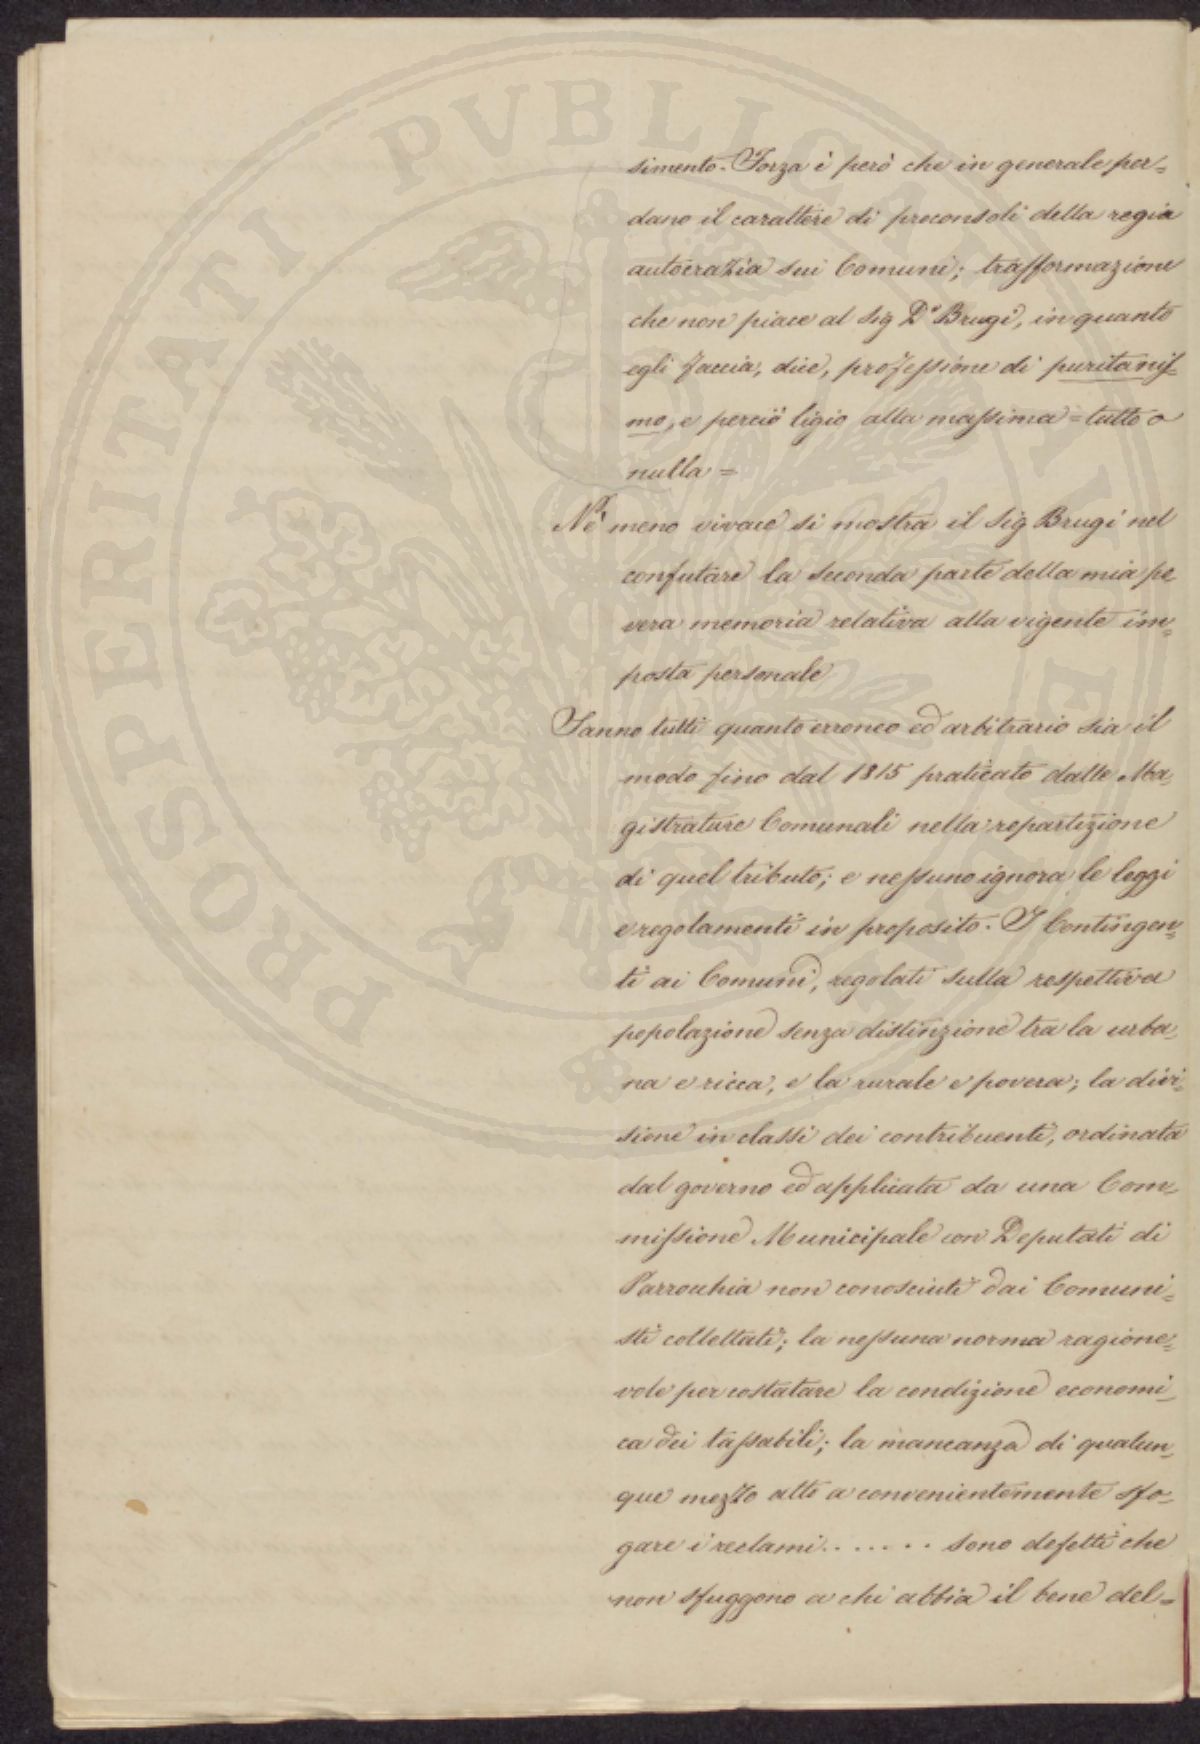 PROSPERITATI PUBLICAE
simento. Forza è però che in generale per=
dano il carattere di proconsoli della regia
autocrazia sui Comuni; trasformazione
che non piace al Sig D.r Brugi, in quanto
egli faccia, dice, professione di puritanis=
mo, e perciò ligio alla massima = tutto o
nulla =
Nè meno vivace si mostra il Sig Brugi nel
confutare la seconda parte della mia po
vera memoria relativa alla vigente im=
posta personale
Sanno tutti quanto erroneo ed arbitrario sia il
modo fino dal 1815 praticato dalle Ma=
gistrature Comunali nella repartizione
di quel tributo; e nessuno ignora le leggi
e regolamenti in proposito. I Contingen=
ti ai Comuni, regolati sulla respettiva
popolazione senza distinzione tra la urba=
na e ricca, e la rurale e povera; la divi=
sione in classi dei contribuenti, ordinata
dal governo ed applicata da una Com=
missione Municipale con Deputati di
Parrochia non conosciuti dai Comuni=
sti collettati; la nessuna norma ragione=
vole per costatare la condizione economi=
ca dei tassabili; la mancanza di qualun=
que mezzo atto a convenientemente sfo=
gare i reclami....... sono defetti che
non sfuggono a chi abbia il bene del=